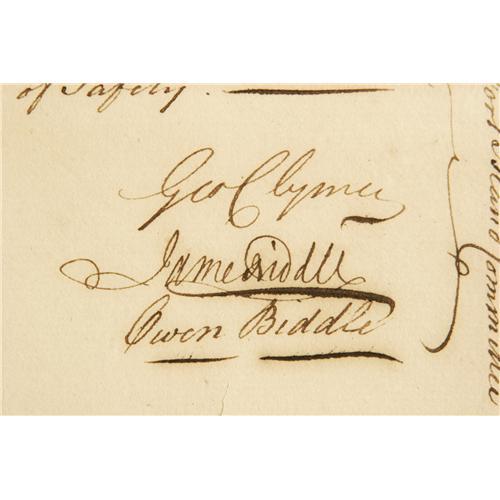 of Safety.
Geo Clymer
James Biddle
Owen Biddle